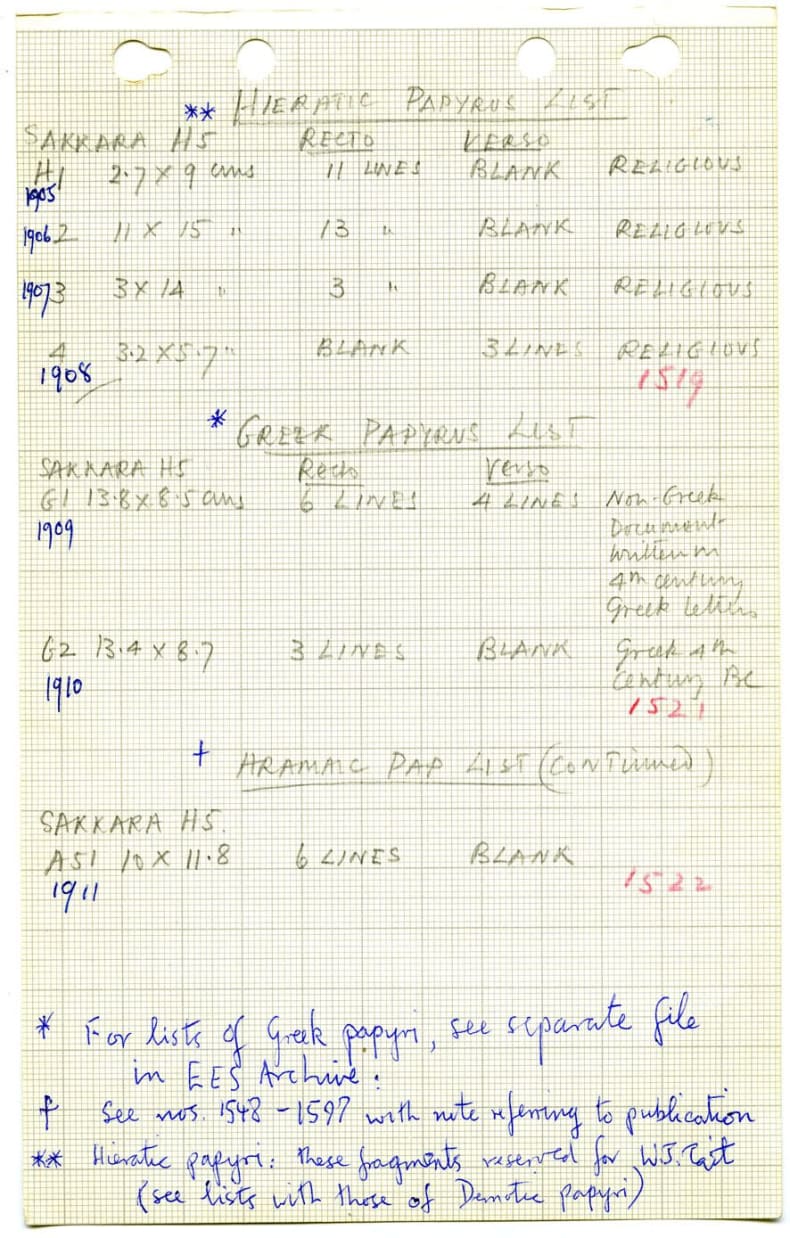 ** HIERATIC PAPYRUS LIST
SAKKARA H5 RECTO VERSO
H1 2.7 X 9 cms 11 LINES BLANK RELIGIOUS
1905
1906 2 11 X 15 " 13 " BLANK RELIGIOUS
1907 3 3 X 14 " 3 " BLANK RELIGIOUS
4 3.2 X 5.7 " BLANK 3 LINES RELIGIOUS
1908 1519
* GREEK PAPYRUS LIST
SAKKARA H5 Recto Verso
G1 13.8 X 8.5 cms 6 LINES 4 LINES Non-Greek
1909 Document
written in
4th century
Greek letters
G2 13.4 X 8.7 3 LINES BLANK Greek 4th
1910 Century BC
1521
† ARAMAIC PAP LIST (CONTINUED)
SAKKARA H5.
A51 10 X 11.8 6 LINES BLANK
1911 1522
* For lists of Greek papyri, see separate file
in EES Archive.
† See nos. 1548 - 1597 with note referring to publication
** Hieratic papyri: these fragments reserved for W.J. Tait
(see lists with those of Demotic papyri)